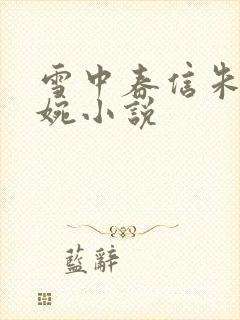 雪中春信朱
婉小說
藍辭